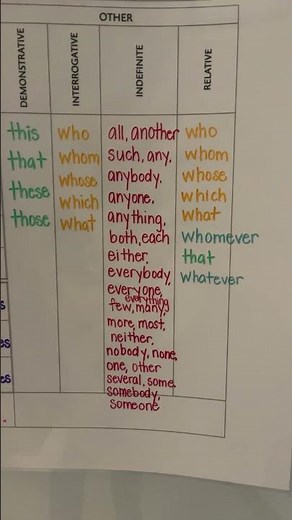 OTHER
DEMONSTRATIVE
INTERROGATIVE
INDEFINITE
RELATIVE
this
that
these
those
who
whom
whose
which
what
all, another
such, any,
anybody,
anyone,
anything,
both, each
either,
everybody,
everyone,
everything
few, many,
more, most,
neither,
nobody, none,
one, other
several, some,
somebody,
someone
who
whom
whose
which
what
whomever
that
whatever